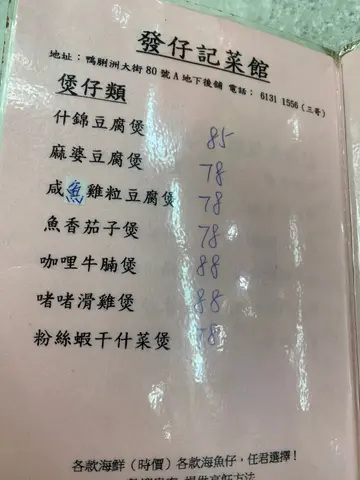 發仔記菜館
地址：鴨脷洲大街 80 號 A 地下後舖 電話： 6131 1556（三哥）
煲仔類
什錦豆腐煲 85
麻婆豆腐煲 78
咸魚雞粒豆腐煲 78
魚香茄子煲 78
咖哩牛腩煲 88
啫啫滑雞煲 88
粉絲蝦干什菜煲 78
各款海鮮（時價）各款海魚仔，任君選擇！